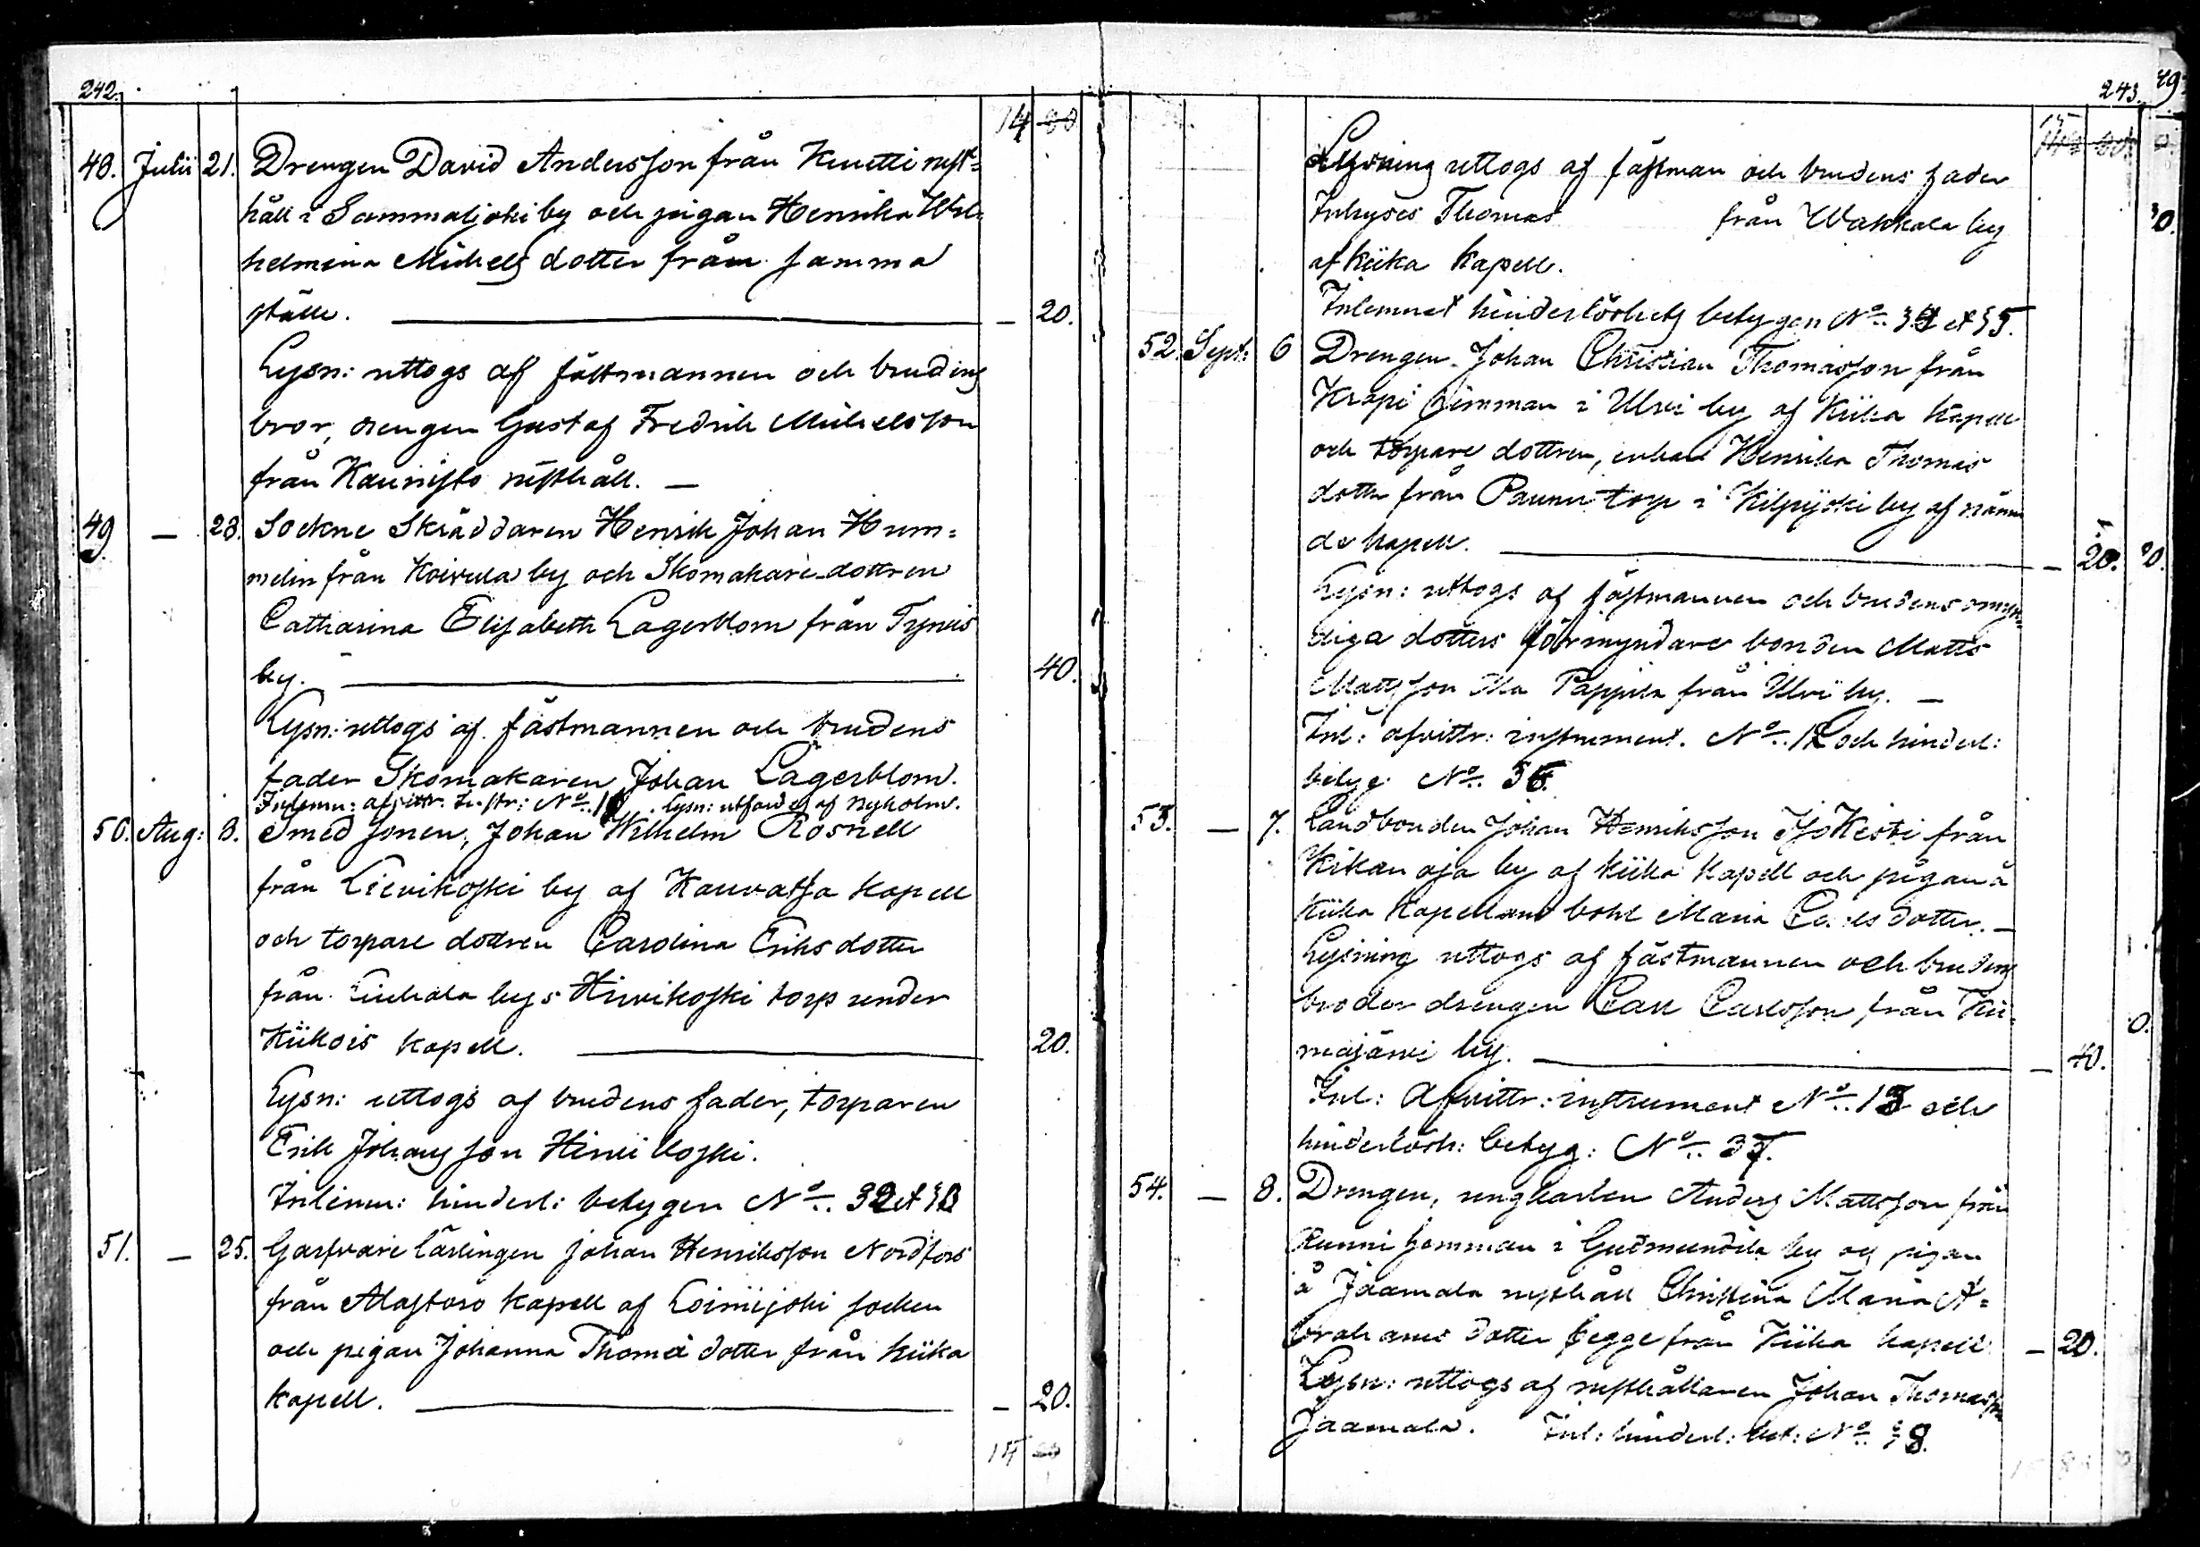 242.
14 80
48. Julii 21. Drengen David Andersson från Knutti rust-
håll i Sammaljoki by och pigan Henrika Wil-
helmina Michels dotter från samma
ställe. — 20.
Lysn: uttogs af fästmannen och brudens
bror, drengen Gustaf Fredrik Michelsson
från Kaunisto rusthåll. —
49. — 28. Sockne Skräddaren Henrik Johan Hum=
melin från Koivula by och Skomakare dottren
Catharina Elisabeth Lagerblom från Tyrvis
by. — 40.
Lysn: uttogs af fästmannen och brudens
fader Skomakaren Johan Lagerblom.
Inlemn: afvittr. Instr: No. 10. Lysn: utfärd. af Nyholm.
50. Aug: 8. Smed sonen, Johan Wilhelm Rosnell
från Lievikoski by af Kauvatsa kapell
och torpare dottren Carolina Eriks dotter
från Kiikala bys Hirvikoski torp under
Kiikois kapell. — 20.
Lysn: uttogs af brudens fader, torparen
Erik Johansson Hirvikoski.
Inlemn: hinderl: betygen No. 32 et 33
51. — 25. Garfvare lärlingen Johan Henriksson Nordfors
från Alastaro kapell af Loimijoki socken
och pigan Johanna Thomæ dotter från Kiika
kapell. — 20.
15
243.
Lysning uttogs af fästman och brudens fader
Inhyses Thomas från Wakkala by
af Kiika kapell.
Inlemnat hinderlöshets betygen No. 34 et 35.
52. Sept: 6 Drengen Johan Christian Thomasson från
Krapi hemman i Ulvi by af Kiika kapell
och torpare dottren, enkan Henrika Thomas
dotter från Paunu torp i Kilpijoki by af nämn
de kapell. — 20.
Lysn: uttogs af fästmannen och brudens omyn-
diga dotters förmyndare bonden Matts
Mattsson Ila Pappila från Ulvi by. —
Inl: afvittr: instrument. No. 12 och hinderl:
betyg: No. 36.
53. — 7. Landbonden Johan Henriksson Iso Kesti från
Kikanoja by af Kiika kapell och pigan å
Kiika Kapellans bohl Maria Carls dotter. —
Lysning uttogs af fästmannen och brudens
broder drengen Carl Carlsson från Kii-
majärvi by. — 40.
Inl: Afvittr: instrument No. 13 och
hinderlösh: betyg: No. 37.
54. — 8. Drengen, ungkarlen Anders Mattsson från
Runni hemman i Gudmundila by och pigan
å Jaamala rusthåll Christina Maria A=
brahams dotter begge från Kiika kapell. — 20.
Lysn: uttogs af rusthållaren Johan Thomasson
Jaamala. Inl: hinderl: bet: No. 38.